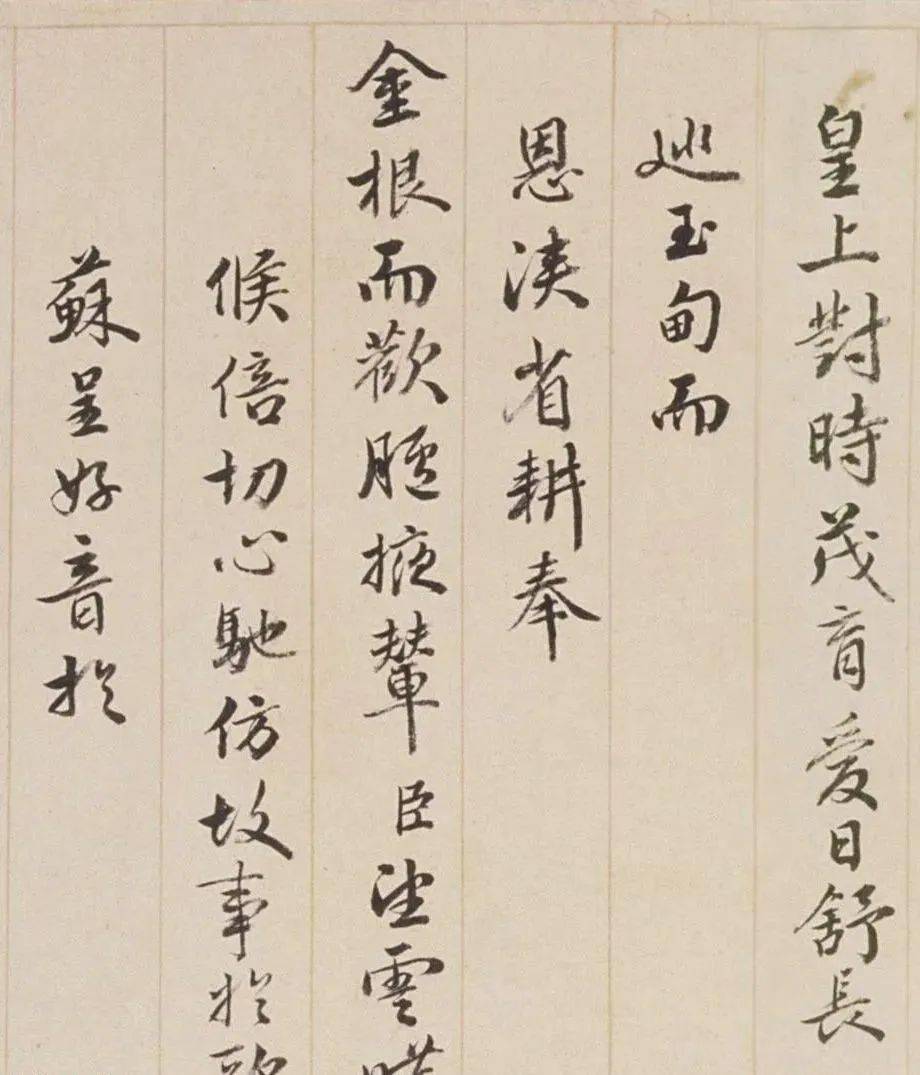 皇上對時茂育愛日舒長
巡玉甸而
恩浹省耕奉
金根而歡臚掖輦臣望雲
候倍切心馳仿故事於
蘇呈好音於